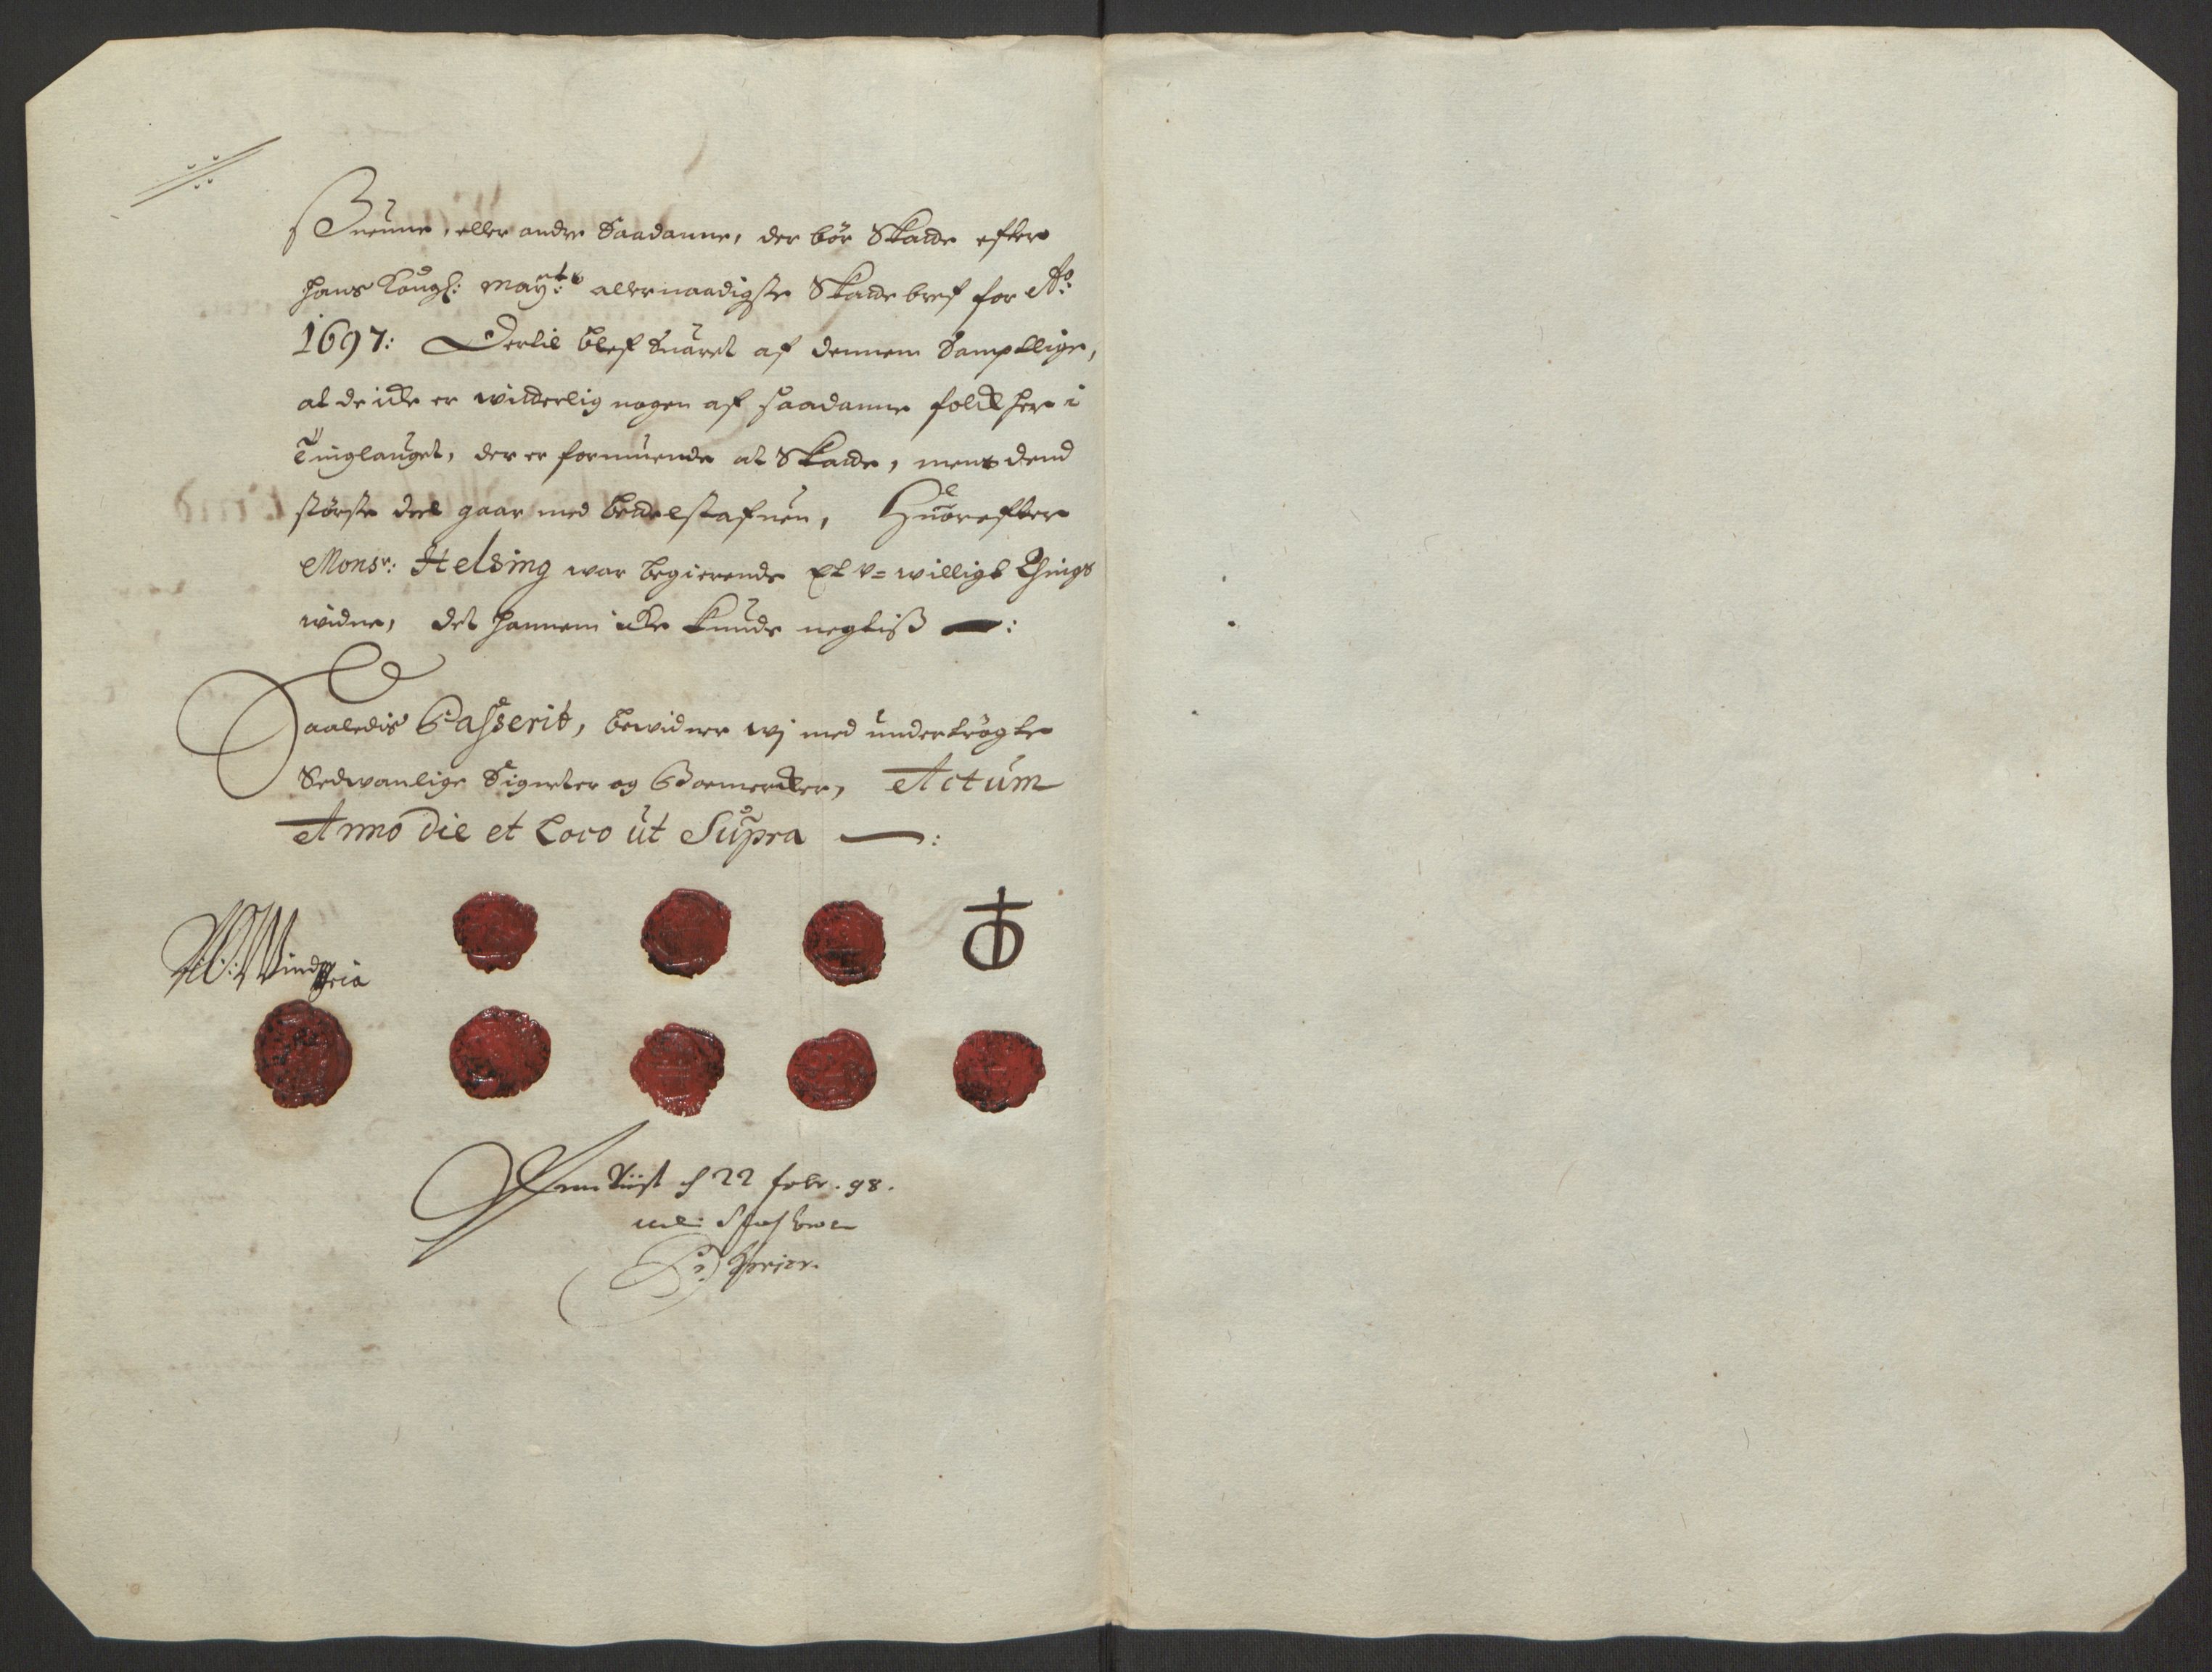 Suenne, eller andre Saadanne, der bör Skatte efter
hans Kongl: May:ts allernaadigste Skattebref for Ao:
1697: Dertil blef Suaret af dennem Samptlige,
at de icke er witterlig nogen af saadanne folck her i
Tinglauget, der er formuende at Skatte, mens dend
störste deel gaar med bettelstafuen, Huorefter
Monsr: Helsing war begierende Et u=willigt Things
widne, det hannem icke kunde negtiß —:
Saaledis Passerit, bewidner wj med undertrögte
Sedvanlige Signeter og Boemercker, Actum
Anno die et Loco ut Supra —:
22 febr. 98.